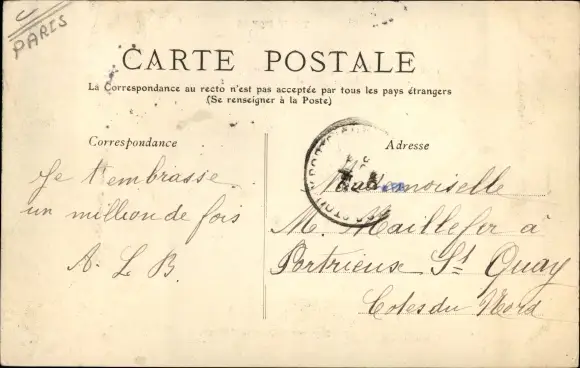 PARIS
CARTE POSTALE
La Correspondance au recto n'est pas acceptée par tous les pays étrangers
(Se renseigner à la Poste)
Correspondance
Je t'embrasse
un million de fois
A. L. B.
Adresse
Mademoiselle
M. Maillefer à
Portrieux St Quay
Cotes du Nord